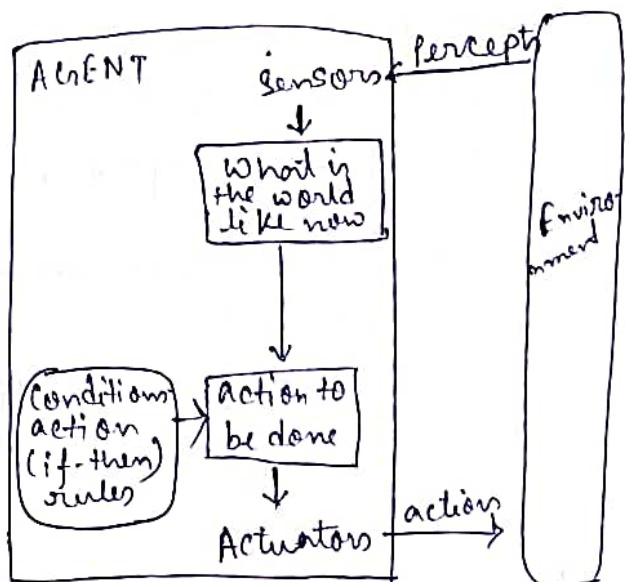 AGENT
Sensors
Percepts
What is
the world
like now
Enviro-
nment
Conditions-
action
(if-then)
rules
action to
be done
Actuators
actions